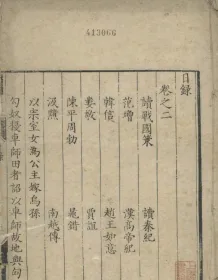 413066
目録
卷之二
讀戰國策 讀秦紀
范增 漢高帝紀
韓信 趙王如意
婁敬 賈誼
陳平周勃 鼂錯
汲黯 南越傳
以宗室女為公主嫁烏孫
匈奴擾車師田者詔以車師故地與匈